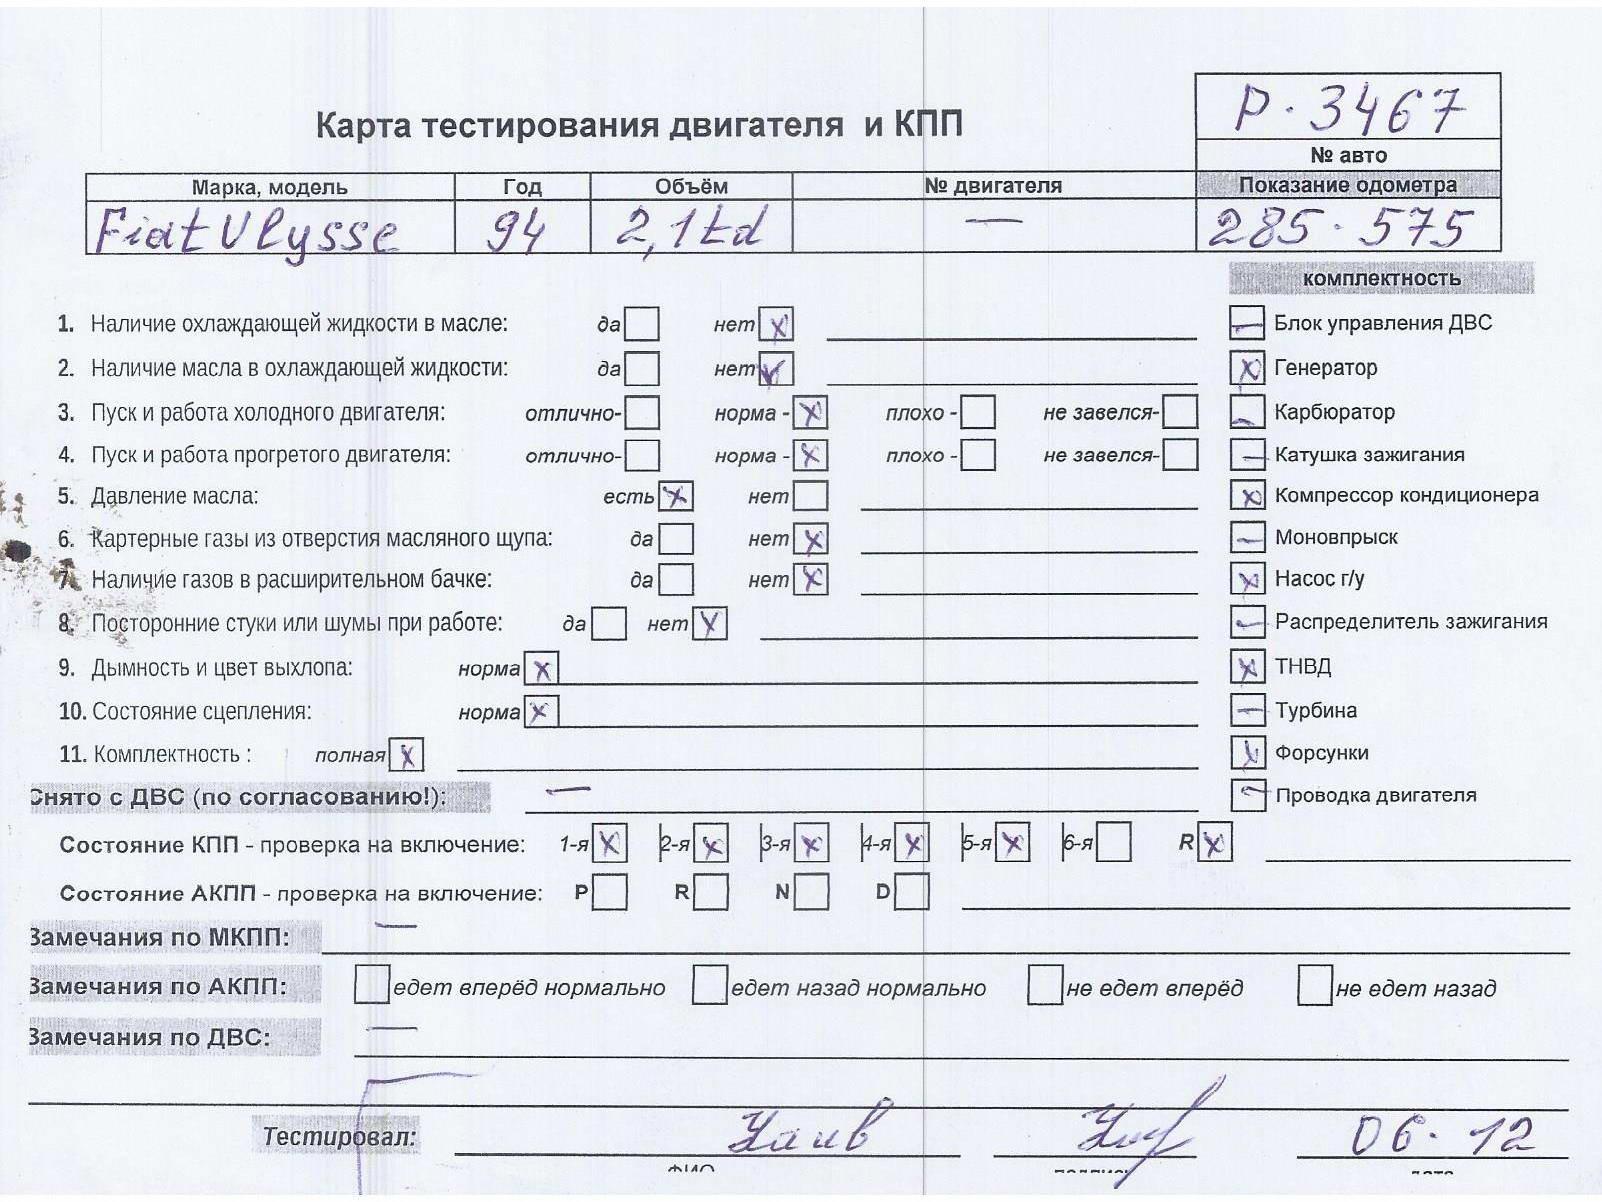 P · 3467
Карта тестирования двигателя и КПП
№ авто
Марка, модель Год Объём № двигателя Показание одометра
Fiat Ulysse 94 2,1 td — 285 · 575
комплектность
1. Наличие охлаждающей жидкости в масле: да нет x — Блок управления ДВС
2. Наличие масла в охлаждающей жидкости: да нет x x Генератор
3. Пуск и работа холодного двигателя: отлично- норма - x плохо - не завелся- — Карбюратор
4. Пуск и работа прогретого двигателя: отлично- норма - x плохо - не завелся- — Катушка зажигания
5. Давление масла: есть x нет x Компрессор кондиционера
6. Картерные газы из отверстия масляного щупа: да нет x — Моновпрыск
7. Наличие газов в расширительном бачке: да нет x x Насос г/у
8. Посторонние стуки или шумы при работе: да нет x — Распределитель зажигания
9. Дымность и цвет выхлопа: норма x x ТНВД
10. Состояние сцепления: норма x — Турбина
11. Комплектность : полная x x Форсунки
Снято с ДВС (по согласованию!): — — Проводка двигателя
Состояние КПП - проверка на включение: 1-я x 2-я x 3-я x 4-я x 5-я x 6-я R x
Состояние АКПП - проверка на включение: P R N D
Замечания по МКПП: —
Замечания по АКПП: едет вперёд нормально едет назад нормально не едет вперёд не едет назад
Замечания по ДВС: —
Тестировал: 06 · 12
ФИО подпись дата